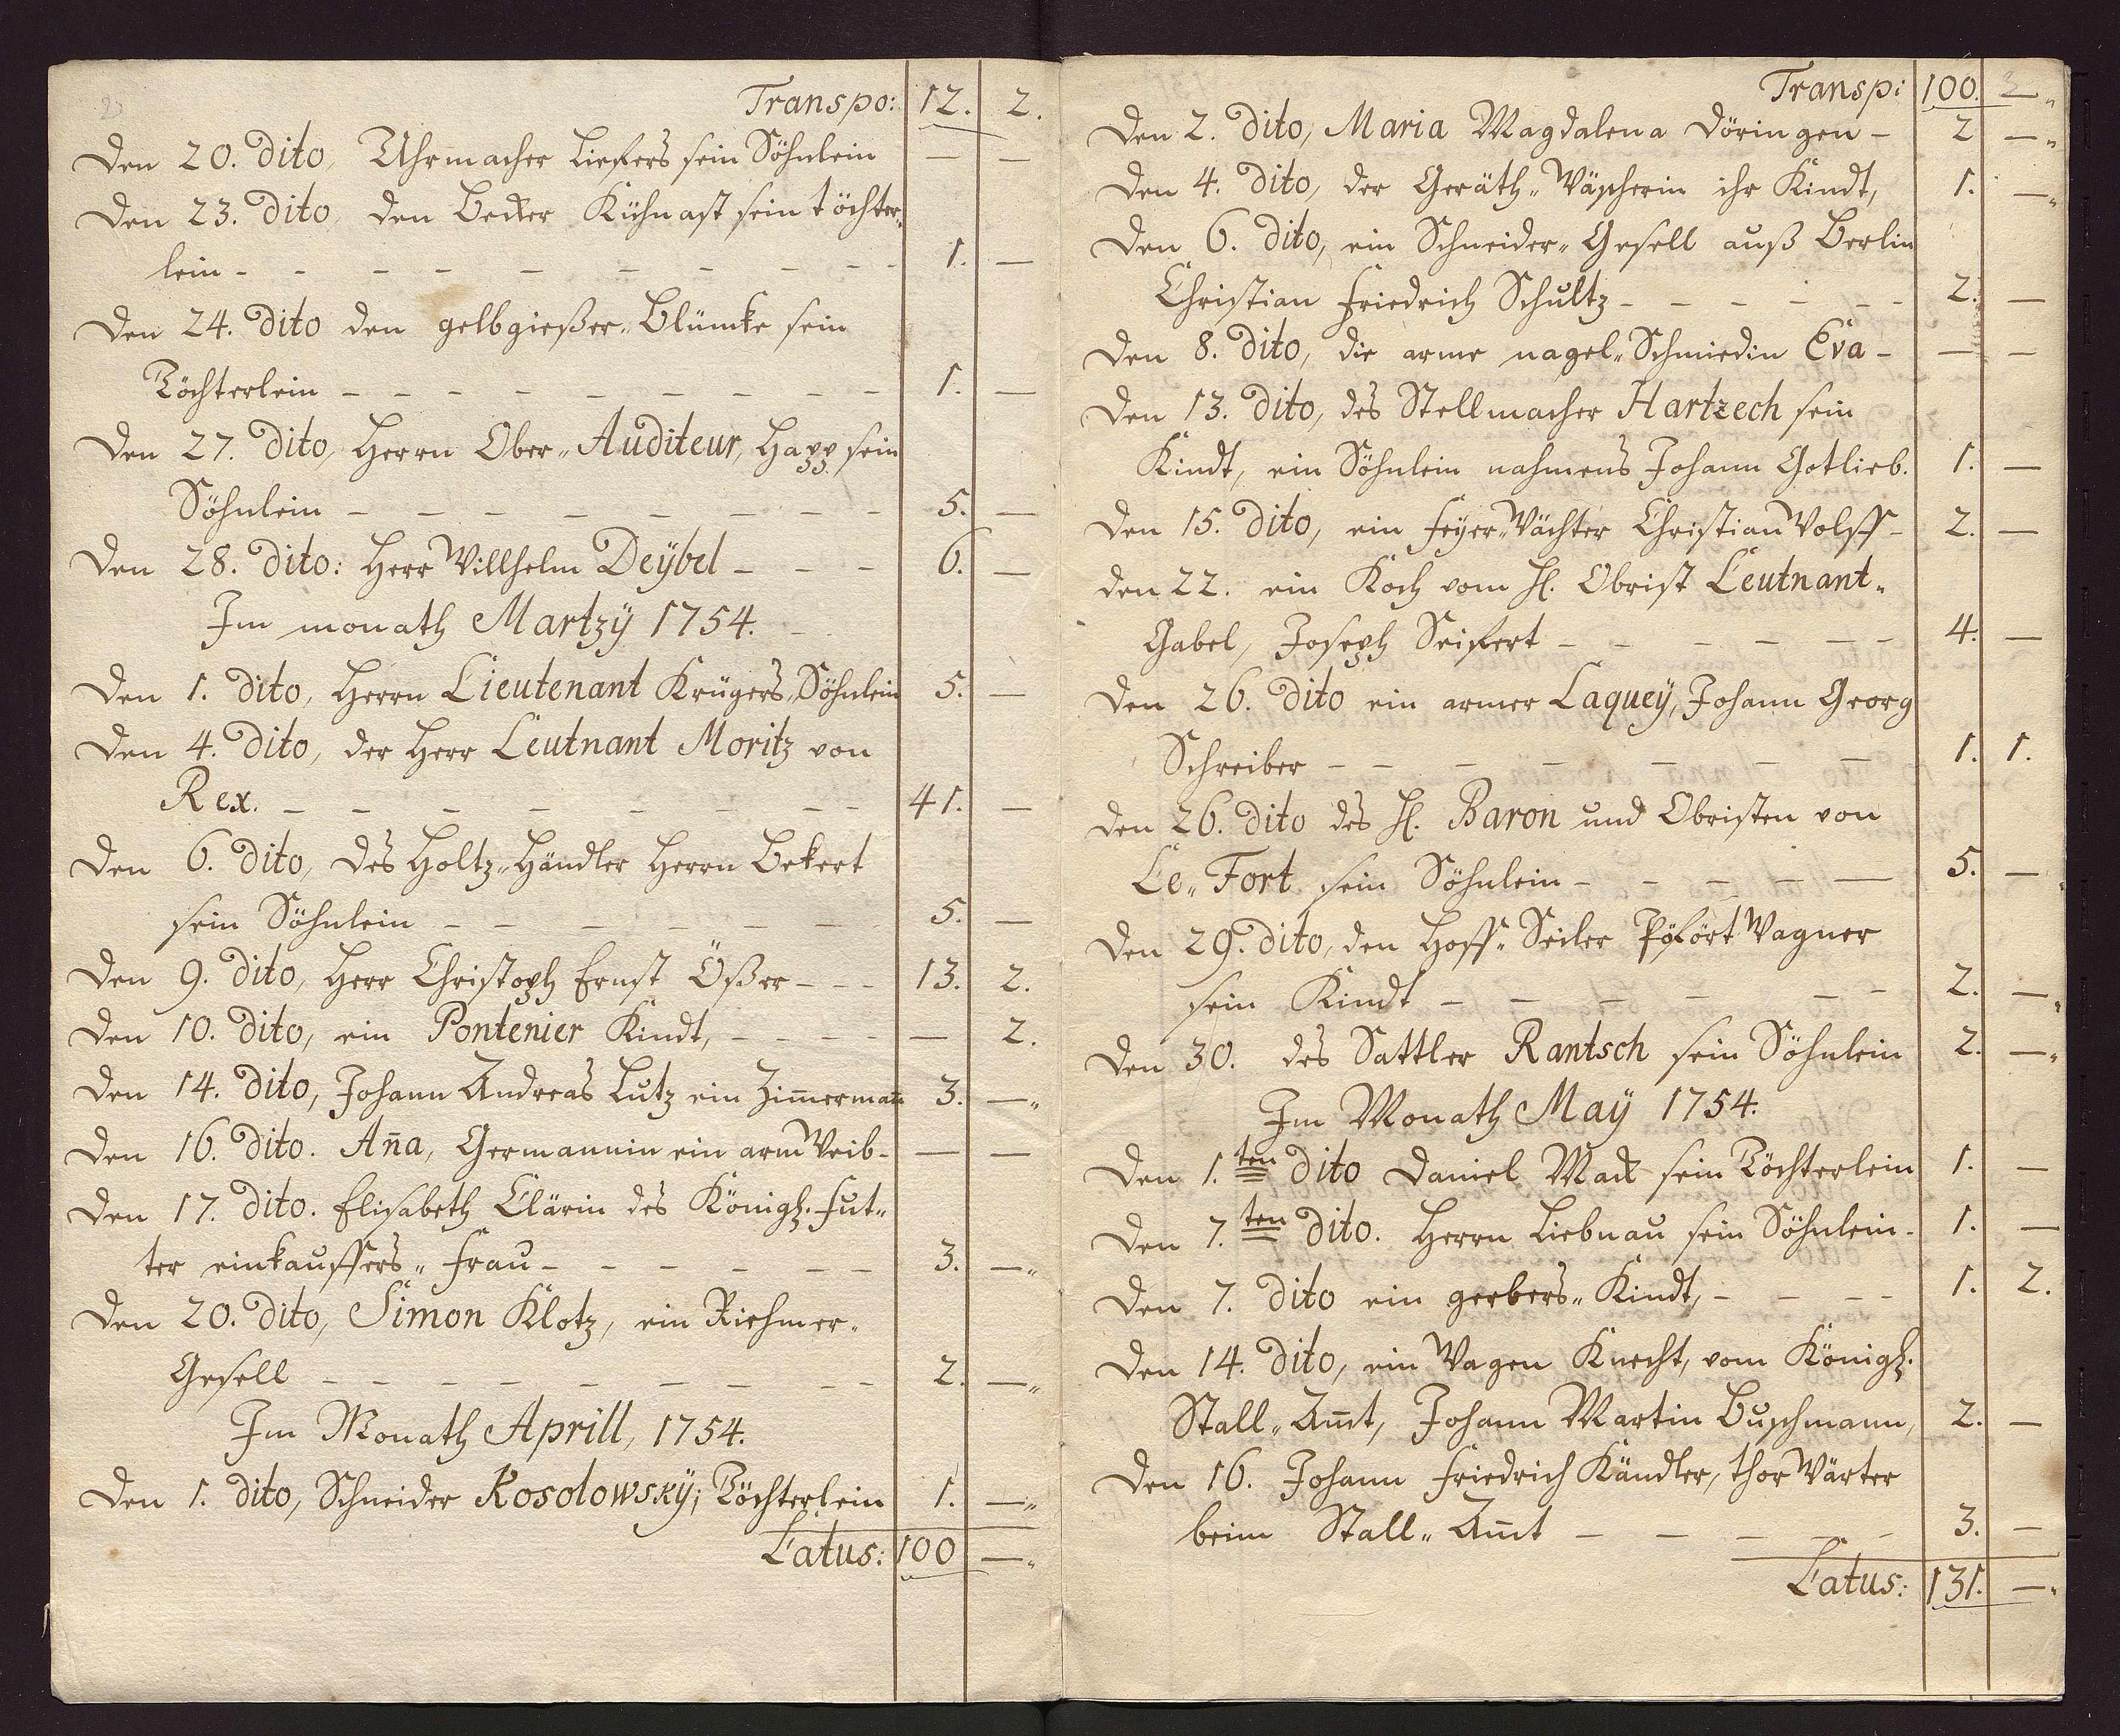 Transpo: 12. 2.
Den 20. dito, Uhrmacher Liefers sein Söhnlein — —
Den 23. dito, den Becker Kühnast sein töchter„
lein - - - - - - - - - 1. —
Den 24. dito den gelbgießer„ Blümke sein
Töchterlein - - - - - - - - - 1. —
Den 27. dito, Herrn Ober„ Auditeur, Happ sein
Söhnlein - - - - - - - - 5. —
Den 28. dito: Herr Willhelm Deÿbel - - - 6. —
Im monath Martzÿ 1754.
Den 1. dito, Herrn Lieutenant Krügers, Söhnlein 5. —
Den 4. dito, der Herr Leutnant Moritz von
Rex. - - - - - - - - 41. —
Den 6. dito, des Holtz„ Händler Herrn Bekert
sein Söhnlein - - - - - - - 5. —
Den 9. dito, Herr Christoph Ernst Ößer - - - 13. 2.
Den 10. dito, ein Pontenier Kindt, - - - - — 2.
Den 14. dito, Johann Andreas Lutz ein Zim̄ermañ 3. —„
Den 16. dito. Aña, Germannin ein arm Weib - — —
Den 17. dito. Elisabeth Clärin des Königl. Fut„
ter einkauffers„ Frau - - - - - - 3. —„
Den 20. dito, Simon Klotz, ein Riehmer„
Gesell - - - - - - - - 2. —„
Im Monath Aprill, 1754.
Den 1. dito, Schneider Rosolowskÿ; Töchterlein 1. —„
Latus: 100 —„
Transp: 100. —„
Den 2. dito, Maria Magdalena Döringen - 2 —„
Den 4. dito, der Geräth„ Wäscherin ihr Kindt, 1. —„
Den 6. dito, ein Schneider„ Gesell auß Berlin
Christian Friedrich Schultz - - - - - - 2. —
Den 8. dito, die arme nagel„ Schmiedin Eva - — —
Den 13. dito, des Stellmacher Hartzech sein
Kindt, ein Söhnlein nahmens Johann Gotlieb. 1. —
Den 15. dito, ein Feÿer Wächter Christian Wolff - 2. —
den 22. ein Koch vom H. Obrist Leutnant„
Gabel, Joseph Seifert - - - - - - 4. —
Den 26. dito ein armer Laqueÿ, Johann Georg
Schreiber - - - - - - - 1. 1.
den 26. dito des H. Baron und Obristen von
Le„ Fort sein Söhnlein - - - - - 5. —„
Den 29. dito, den Hoff„ Seiler Wagner
sein Kindt - - - - - - 2. —„
Den 30. des Sattler Rantsch sein Söhnlein 2. —„
Im Monath Maÿ 1754.
Den 1.ten dito Daniel Mack sein Töchterlein 1. —
Den 7.ten dito. Herrn Liebnau sein Söhnlein - 1. —
Den 7. dito ein gerbers„ Kindt, - - - - 1. 2.
Den 14. dito, ein Wagen Knecht, vom Königl.
Stall„ Am̄t, Johann Martin Buschmann, 2. —
Den 16. Johann Friedrich Kändler, thor Wärter
beim Stall„ Am̄t - - - - - 3. —
Latus: 131. —„